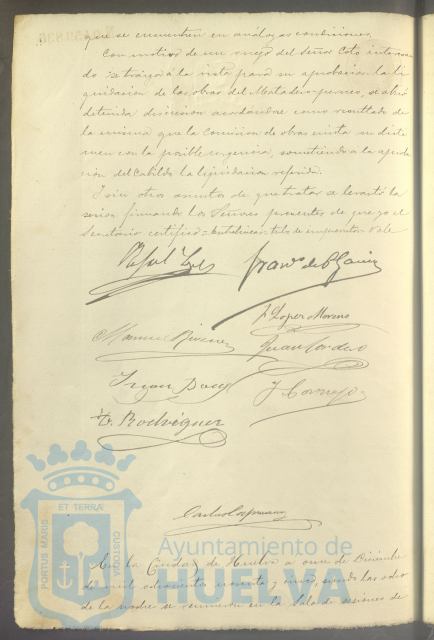 que se encuentren en análogas condiciones.
Con motivo de un ruego del Señor Coto interesando
se traiga á la vista para su aprobacion la li
quidacion de las obras del Matadero público, se abrió
detenida discusion acordándose como resultado de
la misma que la Comision de obras emita su dicta
men con la posible urgencia, sometiendo á la aproba
ción del Cabildo la liquidacion referida.
Y sin otros asuntos de que tratar se levantó la
sesion firmando los Señores presentes de que yo el
Secretario certifico = Entrelineas = Vale
Franco de P. García
J. Lopez Moreno
Manuel
Juan Cordero
J. Cornejo
Rodriguez
ET TERRÆ
PORTUS MARIS
CUSTODIA
Ayuntamiento de
HUELVA
En la Ciudad de Huelva a once de Diciembre
de mil ochocientos noventa y cinco, siendo las ocho
de la noche se reunieron en la Sala de sesiones de